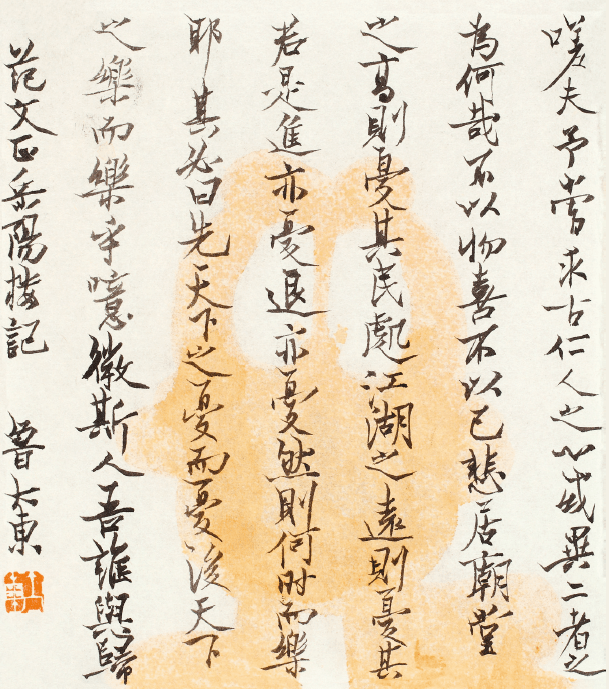 嗟夫予嘗求古仁人之心或異二者之
為何哉不以物喜不以己悲居廟堂
之高則憂其民處江湖之遠則憂其
君是進亦憂退亦憂然則何时而樂
耶其必曰先天下之憂而憂後天下
之樂而樂乎噫微斯人吾誰與歸
范文正岳陽楼記 魯大東